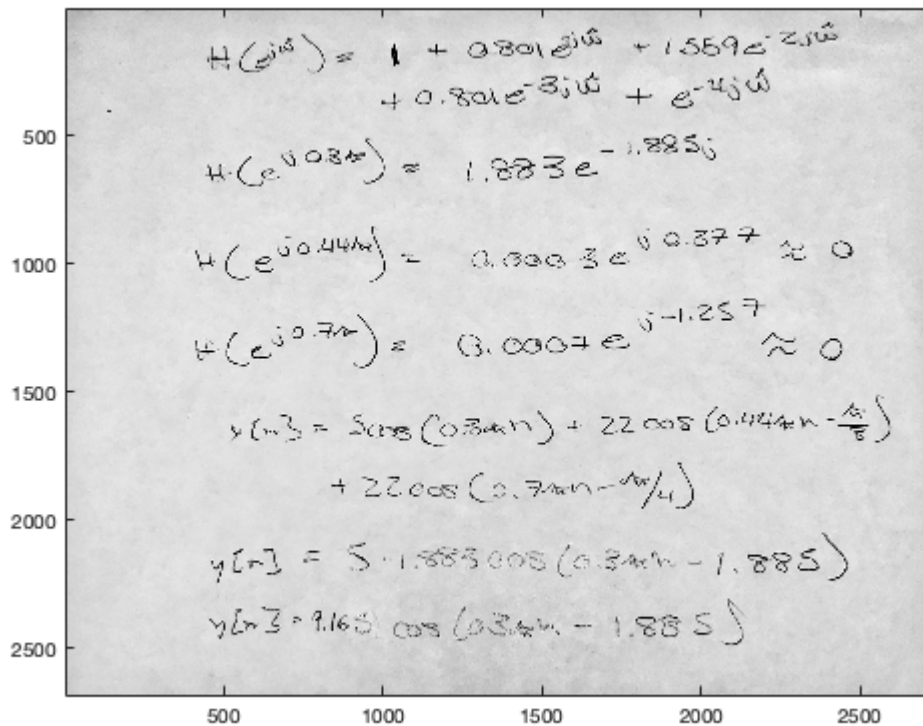 H(e^{jω̂}) = 1 + 0.801e^{jω̂} + 1.559e^{-2jω̂}
+ 0.801e^{-3jω̂} + e^{-4jω̂}
500
H(e^{j0.3π}) = 1.883e^{-1.885j}
H(e^{j0.44π}) = 0.0003e^{j0.377} ≈ 0
1000
H(e^{j0.7π}) = 0.0007e^{j-1.257} ≈ 0
1500
x[n] = 5cos(0.3πn) + 22cos(0.44πn - π/8)
+ 22cos(0.7πn - π/4)
2000
y[n] = 5·1.883cos(0.3πn - 1.885)
y[n] = 9.165 cos(0.3πn - 1.885)
2500
500 1000 1500 2000 2500